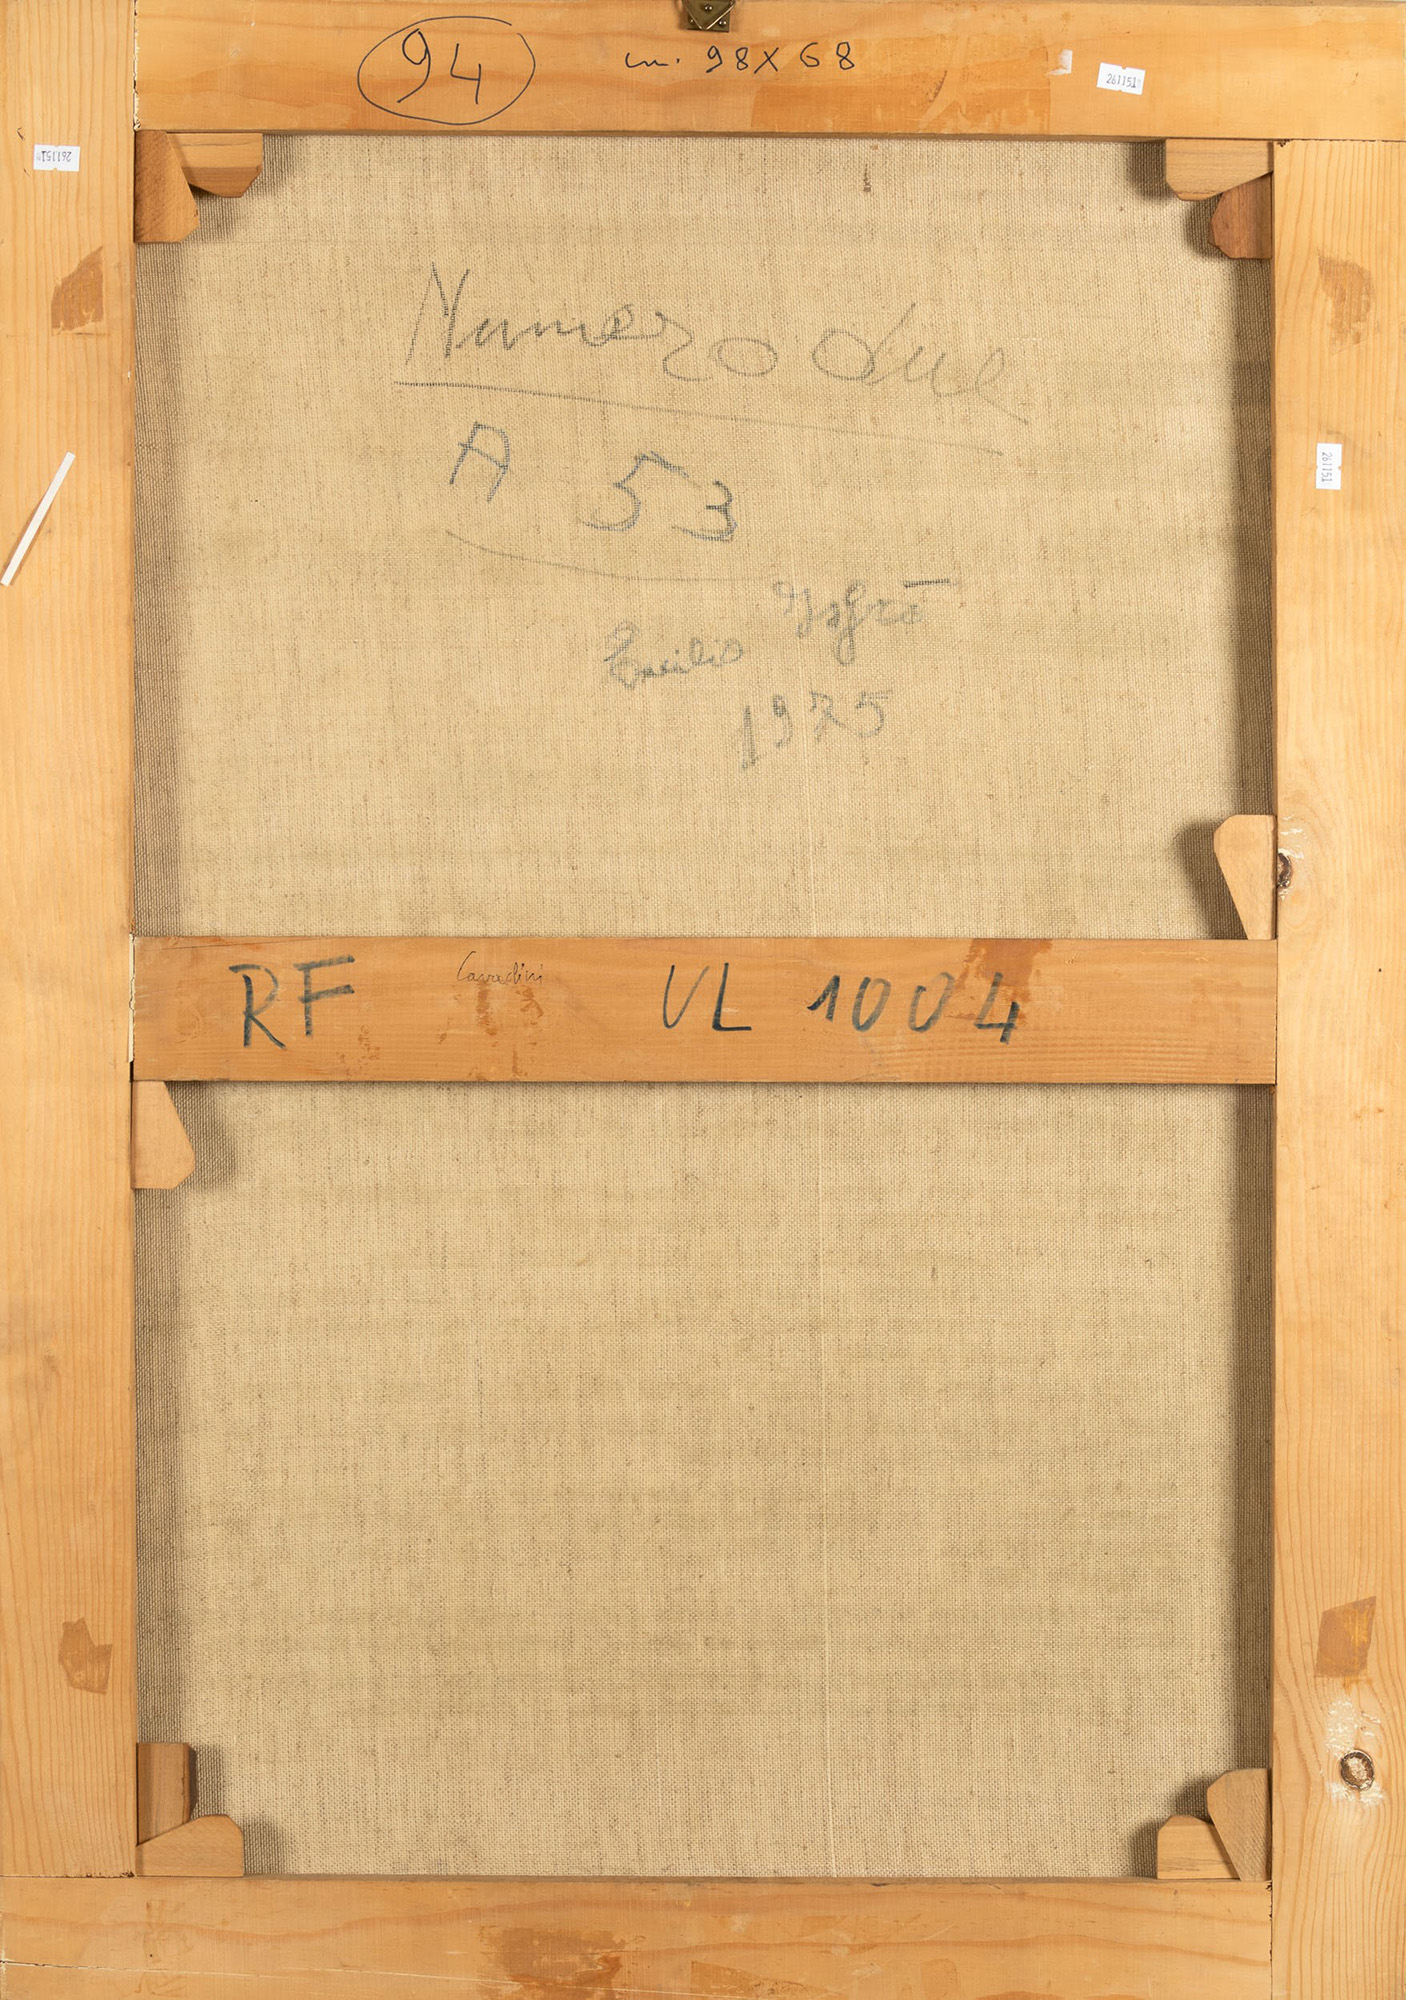 94
cm. 98X68
261151
261151
Numero due
A 53
261151
Emilio Isgrò
1975
RF
Cavadini
VL 1004